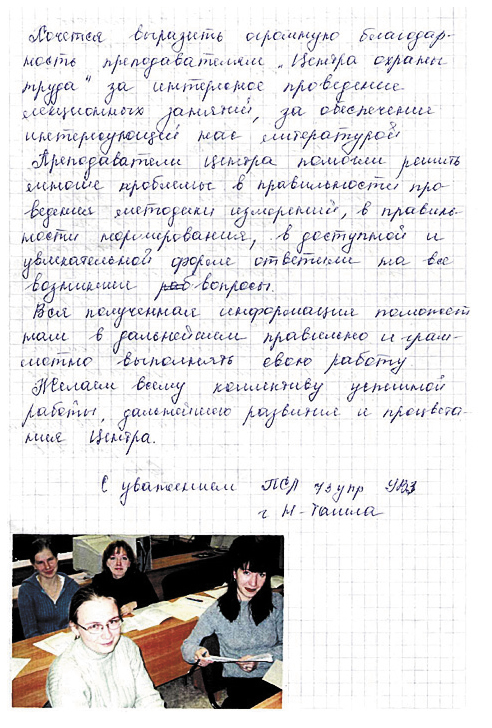 Хочется выразить огромную благодар-
ность преподавателям "Центра охраны
труда" за интересное проведение
лекционных занятий, за обеспечение
интересующей нас литературой
Преподаватели Центра помогли решить
многие проблемы в правильности про
ведения методики измерений, в правиль-
ности нормирования, в доступной и
увлекательной форме ответили на все
возникшие вопросы.
Вся полученная информация поможет
нам в дальнейшем правильно и грам-
мотно выполнять свою работу.
Желаем всему коллективу успешной
работы, дальнейшего развития и процвета-
ния Центра.
С уважением ПСЛ УВЗ
г Н-Тагила